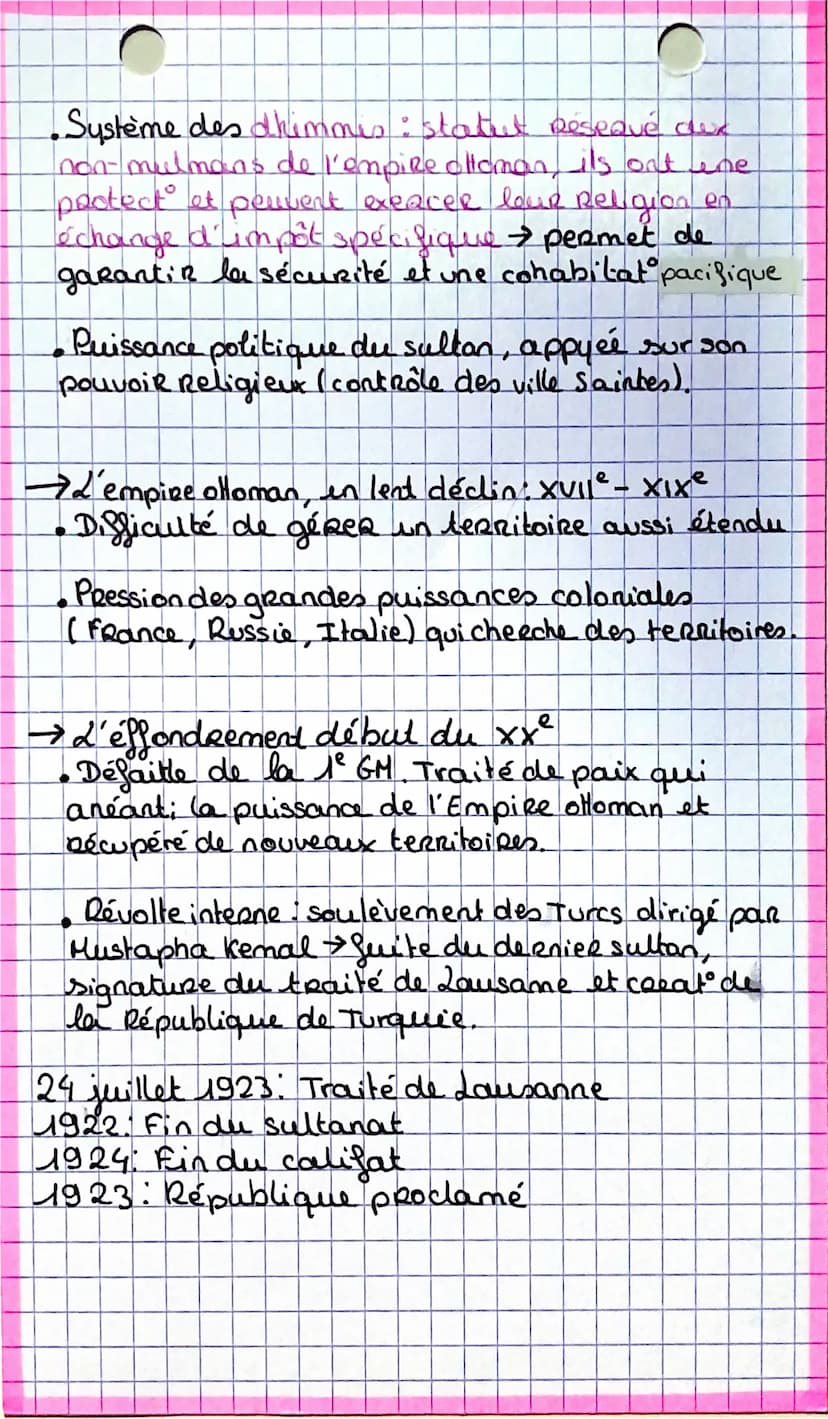 . Système des dhimmis : statut réservé aux
non-mulmans de l'empire ottoman, ils ont une
protect° et peuvent exercer leur religion en
échange d'impôt spécifique → permet de
garantir la sécurité et une cohabitat° pacifique
. Puissance politique du sultan, appyéé sur son
pouvoir religieux (contrôle des ville saintes).
→ L'empire ottoman, en lent déclin : XVIIe - XIXe
. Difficulté de gérer un territoire aussi étendu
. Pression des grandes puissances coloniales
(France, Russie, Italie) qui cherche des territoires.
→ L'éffondrement début du XXe
. Défaitte de la 1e GM. Traité de paix qui
anéanti la puissance de l'Empire ottoman et
récupéré de nouveaux territoires.
. Révolte interne : soulèvement des Turcs dirigé par
Mustapha Kemal → fuite du dernier sultan,
signature du traité de Lausanne et creat° de
la République de Turquie.
24 juillet 1923 : Traité de Lausanne
1922 : Fin du sultanat
1924 : Fin du califat
1923 : République proclamé